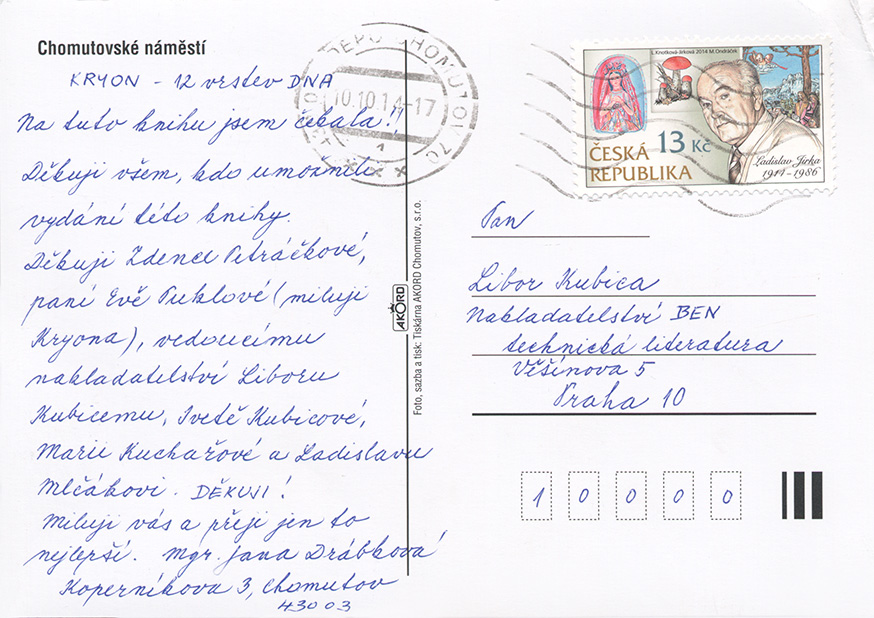 Chomutovské náměstí
KRYON - 12 vrstev DNA
Na tuto knihu jsem čekala!!
Děkuji všem, kdo umožnili
vydání této knihy.
Děkuji Zdence Petráčkové,
paní Evě Puklové (miluji
Kryona), vedoucímu
nakladatelství Liboru
Kubicemu, Ivetě Kubicové,
Marii Kuchařové a Ladislavu
Mlčákovi. DĚKUJI!
Miluji vás a přeji jen to
nejlepší. Mgr. Jana Drábková
Koperníkova 3, Chomutov
43003
DEPO CHOMUTOV 70
10.10.14-17
1
Foto, sazba a tisk: Tiskárna AKORD Chomutov, s.r.o.
AKORD
L. Knotková-Jirková 2014 M. Ondráček
13 Kč
ČESKÁ
REPUBLIKA
Ladislav Jirka
1914-1986
Pan
Libor Kubica
Nakladatelství BEN
technická literatura
Věšínova 5
Praha 10
1 0 0 0 0